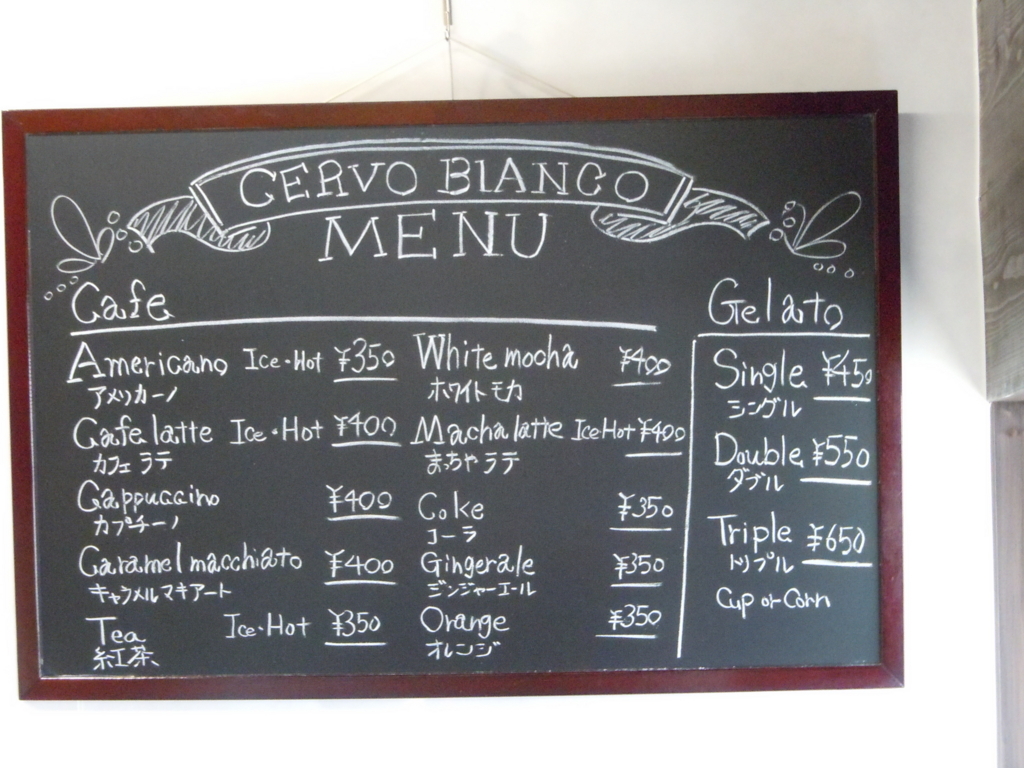 CERVO BIANCO
MENU
Cafe
Americano Ice・Hot ¥350
アメリカーノ
Cafe latte Ice・Hot ¥400
カフェラテ
Cappuccino ¥400
カプチーノ
Caramel macchiato ¥400
キャラメルマキアート
Tea Ice・Hot ¥350
紅茶
White mocha ¥400
ホワイトモカ
Macha latte Ice Hot ¥400
まっちゃラテ
Coke ¥350
コーラ
Gingerale ¥350
ジンジャーエール
Orange ¥350
オレンジ
Gelato
Single ¥450
シングル
Double ¥550
ダブル
Triple ¥650
トリプル
Cup or Corn